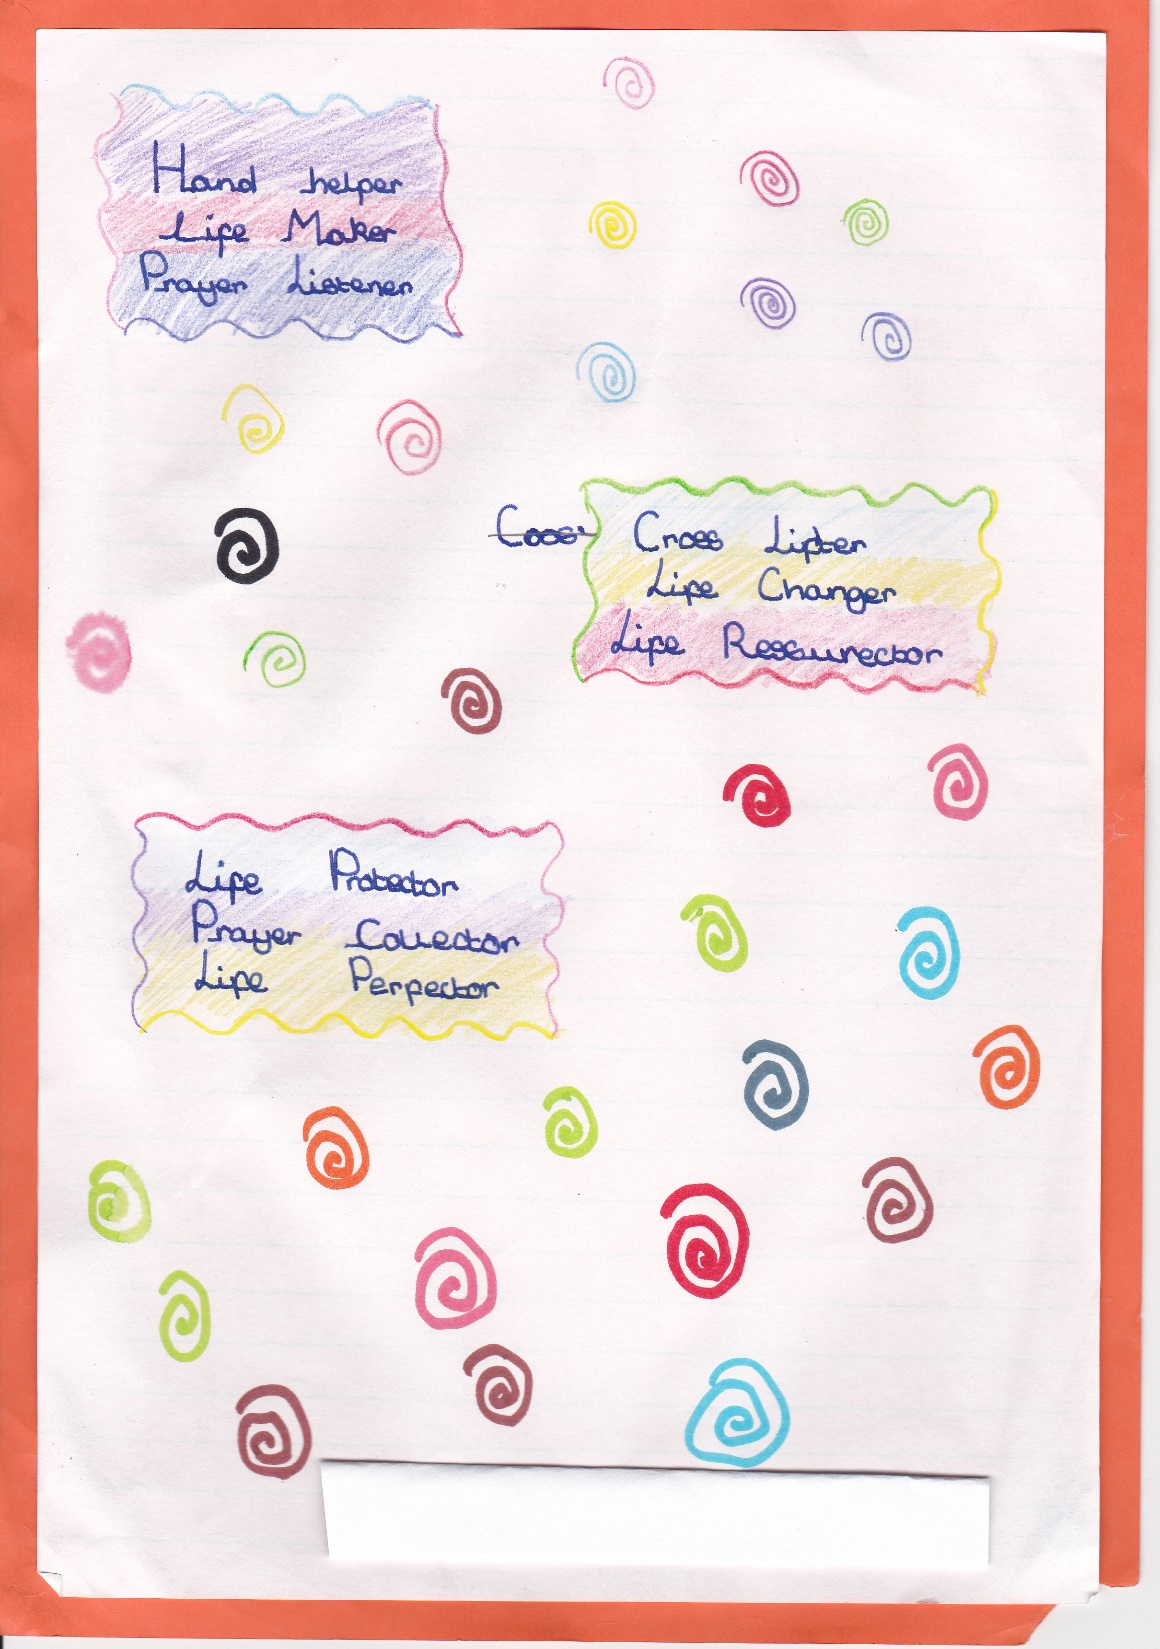 Hand helper
Life Maker
Prayer Listener
Coos
Cross Lifter
Life Changer
Life Ressurector
Life Protector
Prayer Collector
Life Perfector